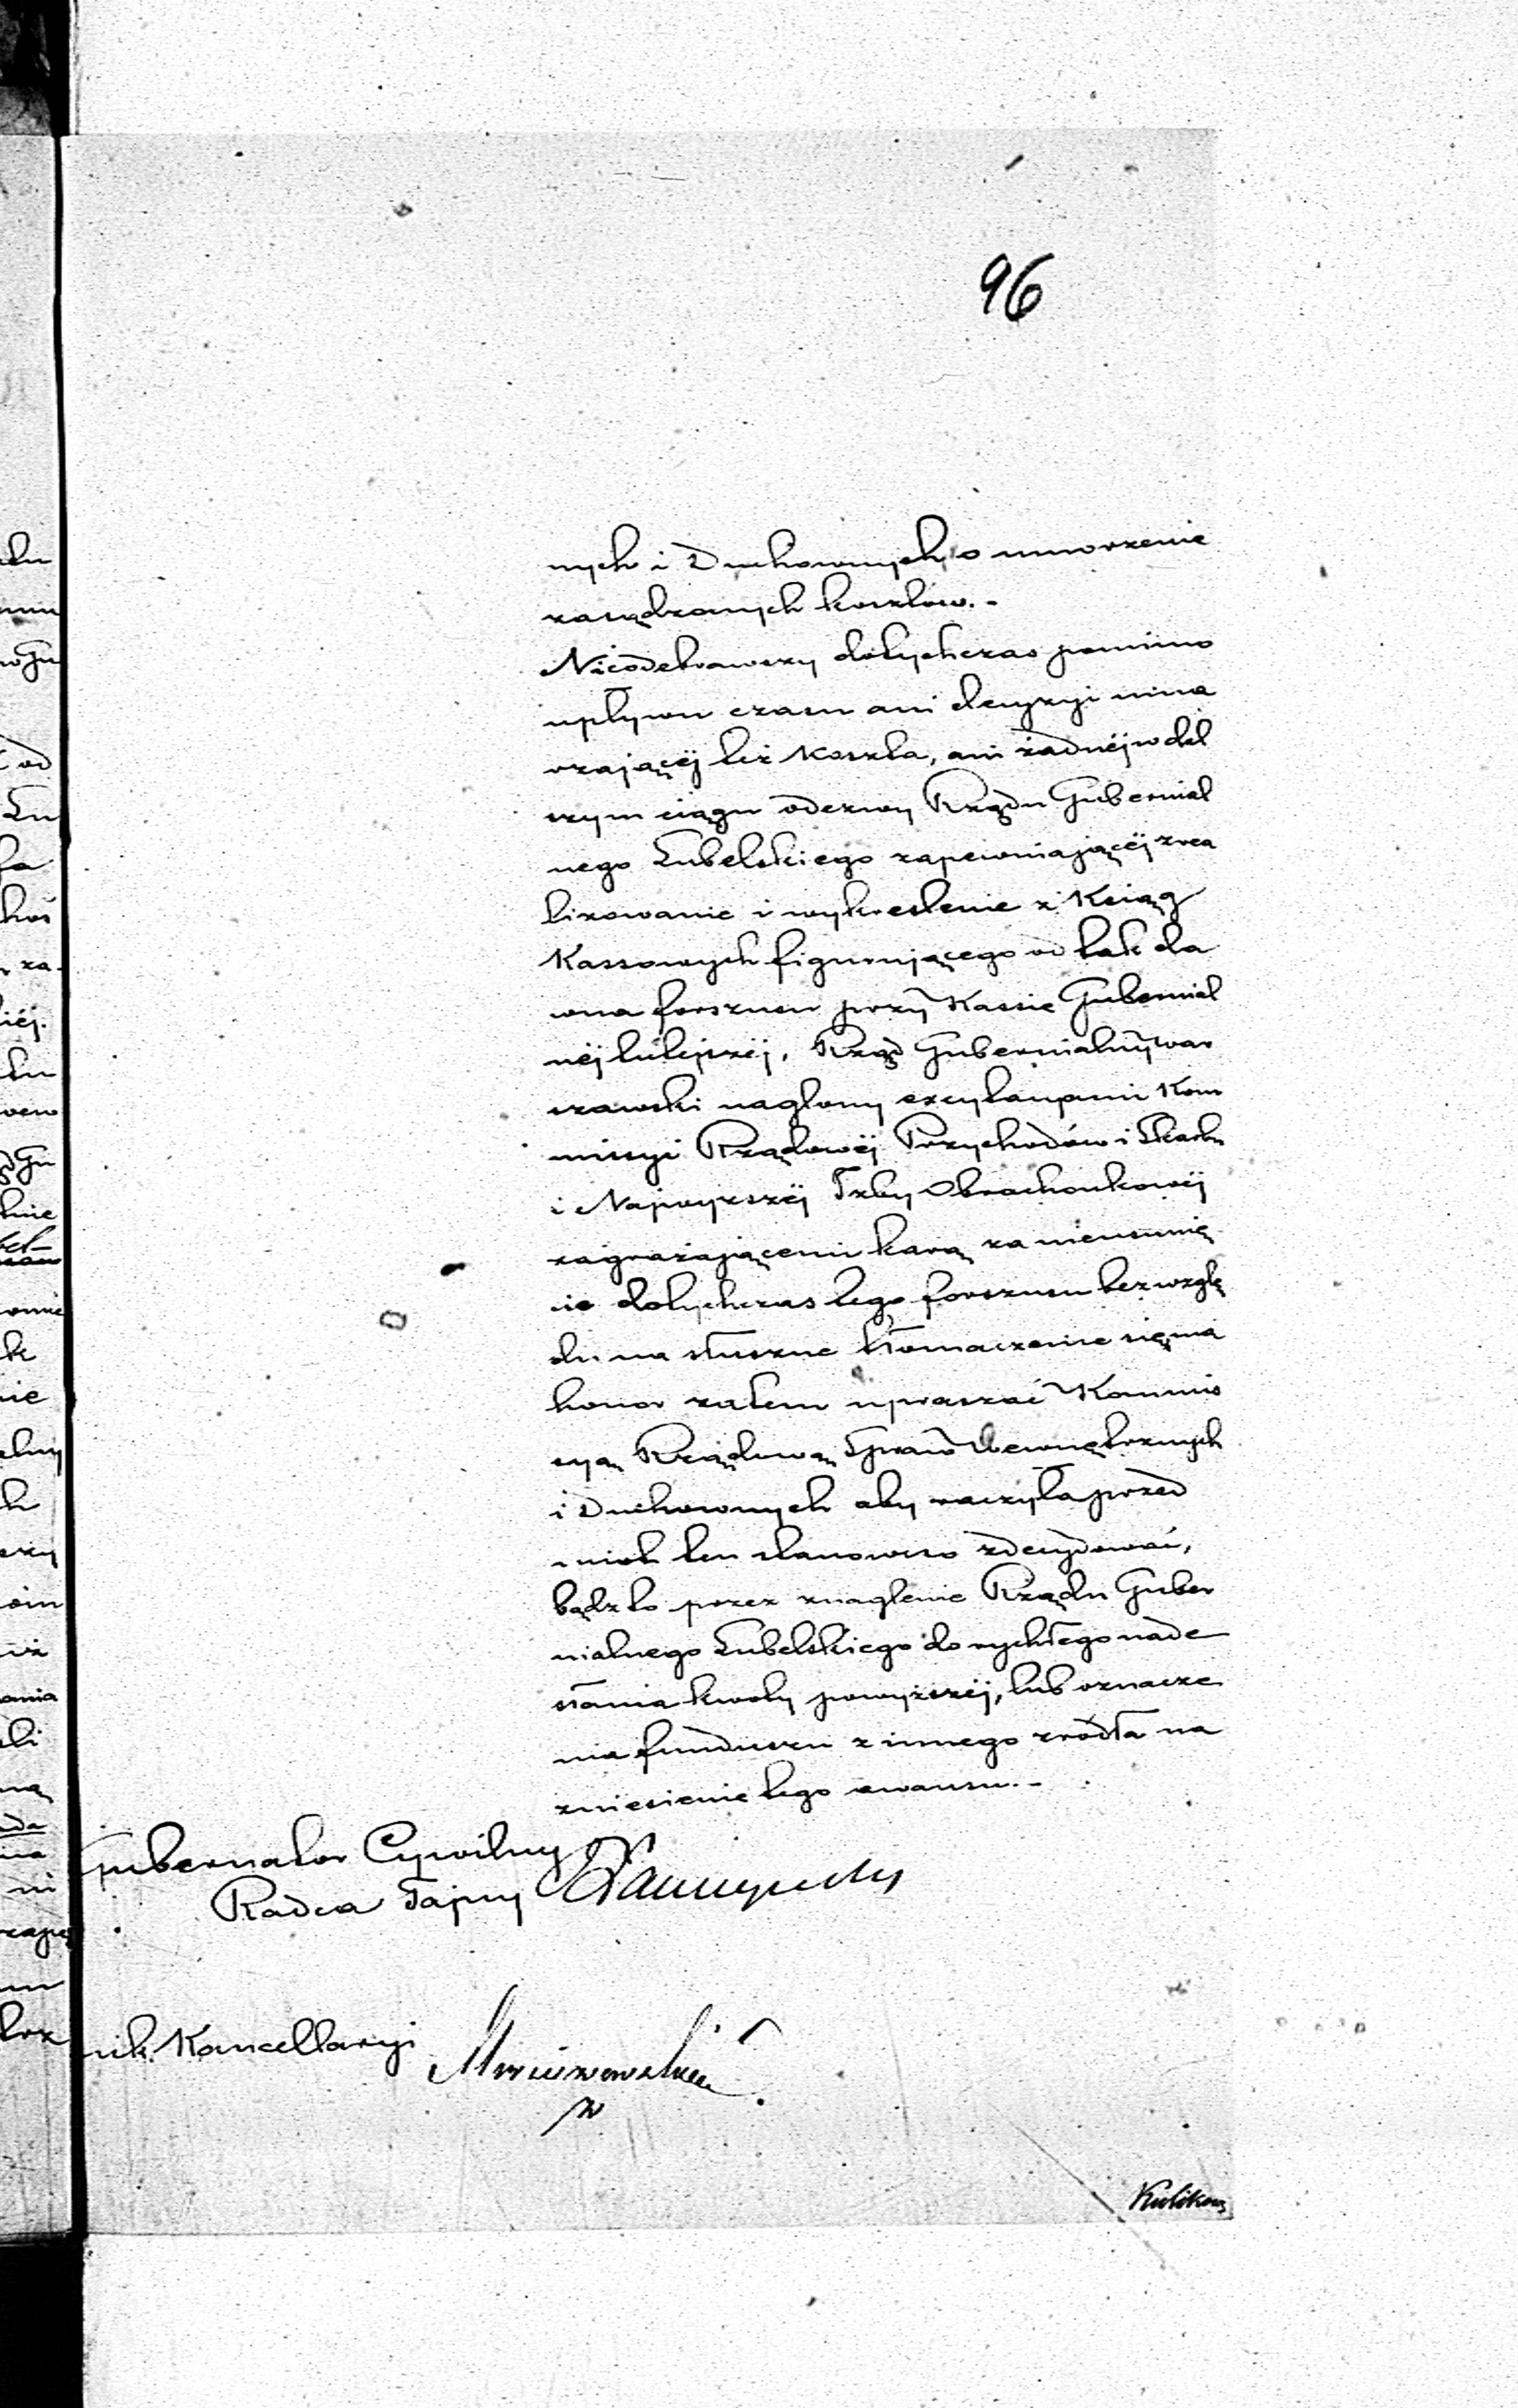 96
nych i Duchownych, o umorzenie
zasądzonych kosztów. -
Nieodebrawszy dotychczas pomimo
upływu czasu ani decyzyi uma
rzającéj też koszta, ani żadnéj w dal
szym ciągu odezwy Rządu Gubernial
nego Lubelskiego zapewniającéj zrea
lizowanie i wykreślenie z Ksiąg
Kassowych figurującego od tak da
wna forszusu przy Kassie Gubernial
néj tutejszéj, Rząd Gubernialny War
szawski naglony excytarzami Kom
missyi Rządowéj Przychodów i Skarbu
i Najwyższéj Izby Obrachonkowéj
zagrażającemi karą za nieusunię
cie dotychczas tego forszusu bez wzglę
du na słuszne tłomaczenie się ma
honor zatem upraszać Kommis
syą Rządową Spraw Wewnętrznych
i Duchownych aby raczyła przed
miot ten stanowczo zdecydować,
bądź to przez znaglenie Rządu Guber
nialnego Lubelskiego do rychłego nade
słania kwoty powyższéj, lub oznacze
nia funduszu z innego źródła na
zniesienie tego awansu. -
Gubernator Cywilny
Radca Tajny
nik Kancellaryi